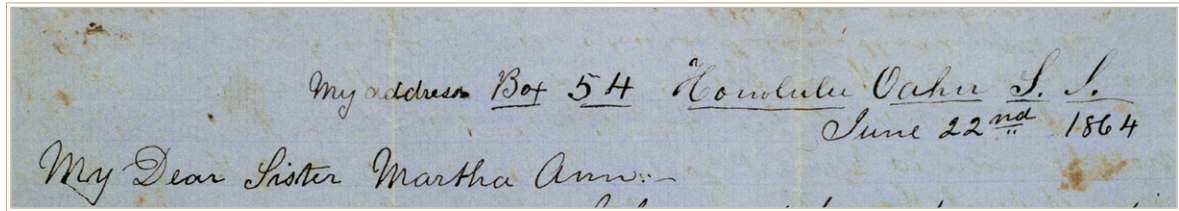 My address Box 54 Honolulu Oahu S. I.
June 22nd 1864
My Dear Sister Martha Ann:-